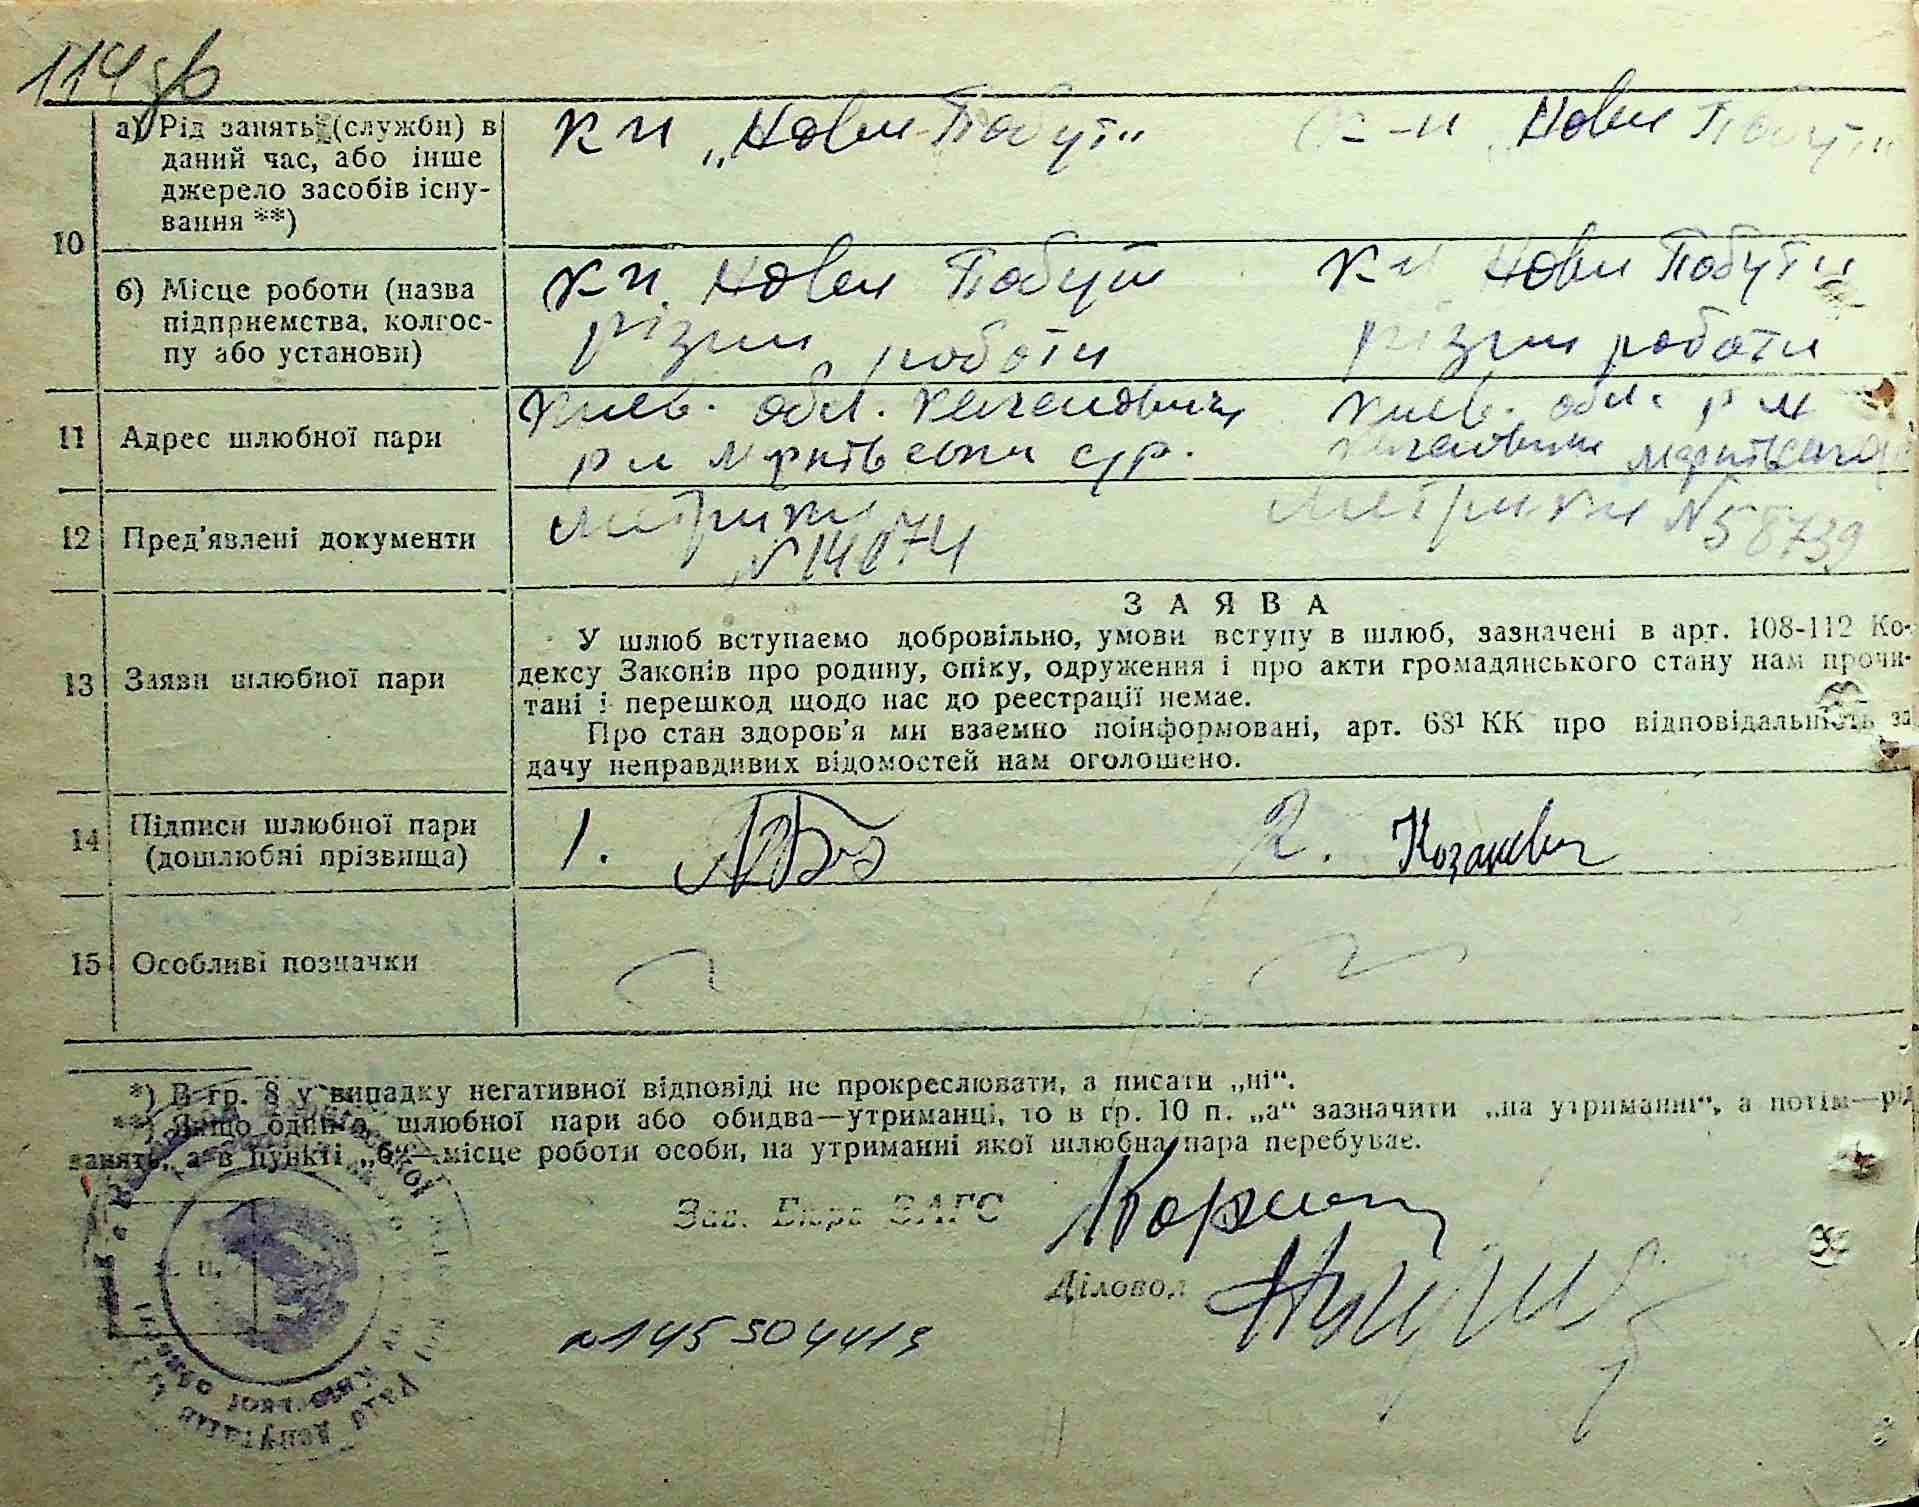 114 зв
а) Рід занять (служби) в
даний час, або інше
джерело засобів існу-
вання **)
к-п „Нови Побути"
к-п „Нови Побути"
10
б) Місце роботи (назва
підприємства, колгос-
пу або установи)
к-п. Нови Побути
різни роботи
к-п Нови Побути
різни роботи
11 Адрес шлюбної пари
Киев. обл.
с/р.
Киев. обл. р-н
12 Пред'явлені документи
Метрики
Метрики № 58739
13 Заяви шлюбної пари
ЗАЯВА
У шлюб вступаємо добровільно, умови вступу в шлюб, зазначені в арт. 108-112 Ко-
дексу Законів про родину, опіку, одруження і про акти громадянського стану нам прочи-
тані і перешкод щодо нас до реєстрації немає.
Про стан здоров'я ми взаємно поінформовані, арт. 68¹ КК про відповідальність за
дачу неправдивих відомостей нам оголошено.
14 Підписи шлюбної пари
(дошлюбні прізвища)
1.
2. Козакевич
15 Особливі позначки
*) В гр. 8 у випадку негативної відповіді не прокреслювати, а писати „ні".
**) Якщо один із шлюбної пари або обидва—утриманці, то в гр. 10 п. „а" зазначити „на утриманні", а потім—рід
занять, а в пункті „б"—місце роботи особи, на утриманні якої шлюбна пара перебуває.
Зав. Бюро ЗАГС
Діловод
М. П.
№145504419